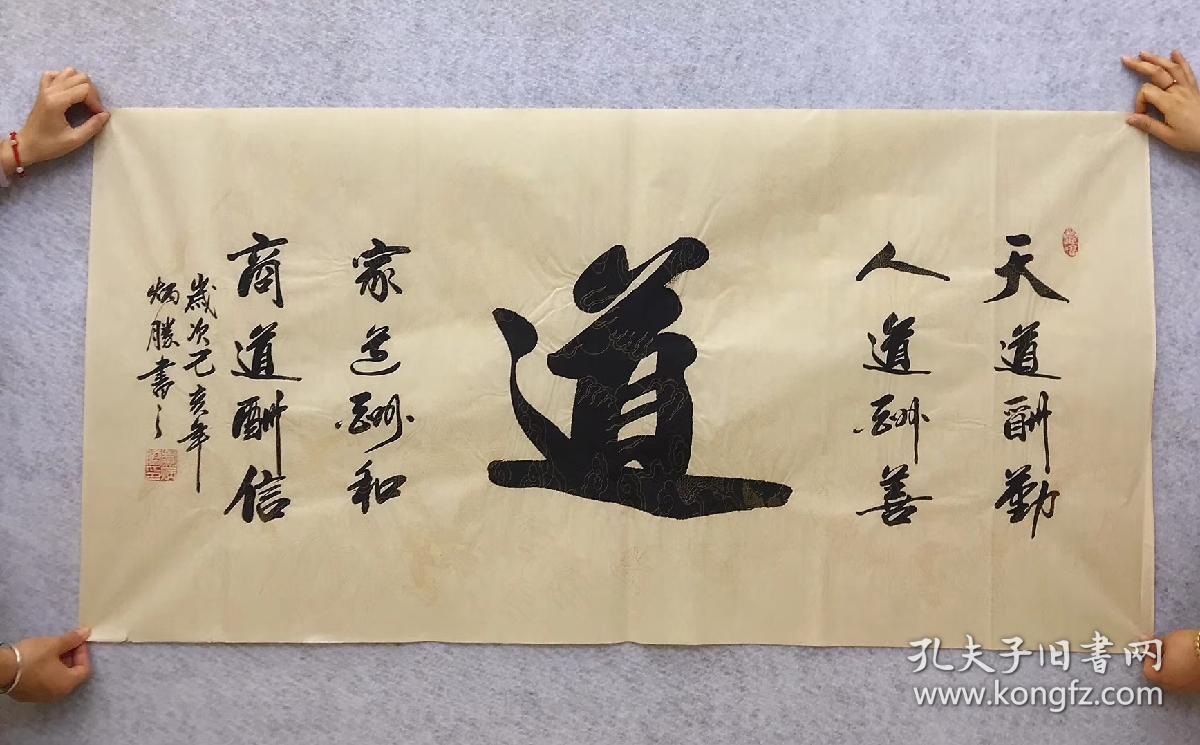 天道酬勤
人道酬善
道
家道酬和
商道酬信
歲次己亥年
炳勝書之
孔夫子旧書网
www.kongfz.com